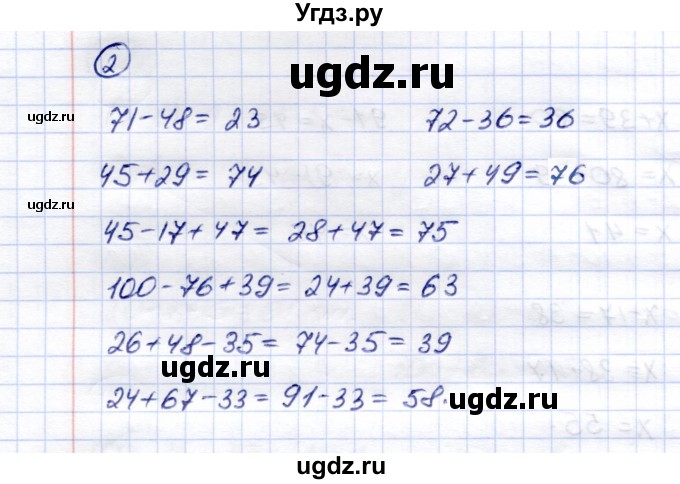 Угдз.ру
2
ugdz.ru
ugdz.ru
71-48= 23 72-36=36
45+29= 74 27+49=76
ugdz.ru
45-17+47= 28+47=75
100-76+39=24+39=63
26+48-35= 74-35=39
ugdz.ru
24+67-33=91-33= 58.
ugdz.ru
ugdz.ru